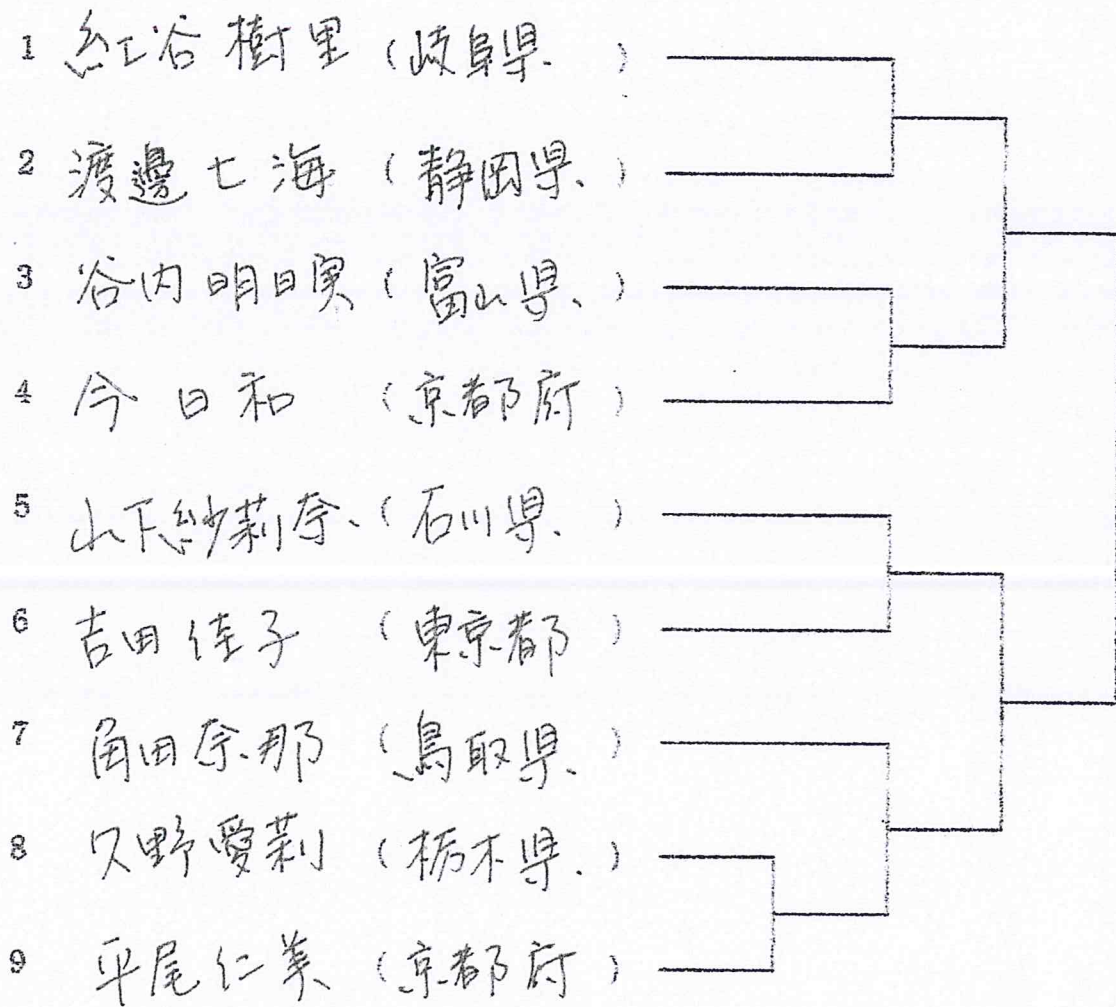 1 紅谷樹里 (岐阜県)
2 渡邊七海 (静岡県)
3 谷内明日実 (富山県)
4 今日和 (京都府)
5 山下紗莉奈 (石川県)
6 吉田佳子 (東京都)
7 角田奈那 (鳥取県)
8 久野愛莉 (栃木県)
9 平尾仁美 (京都府)